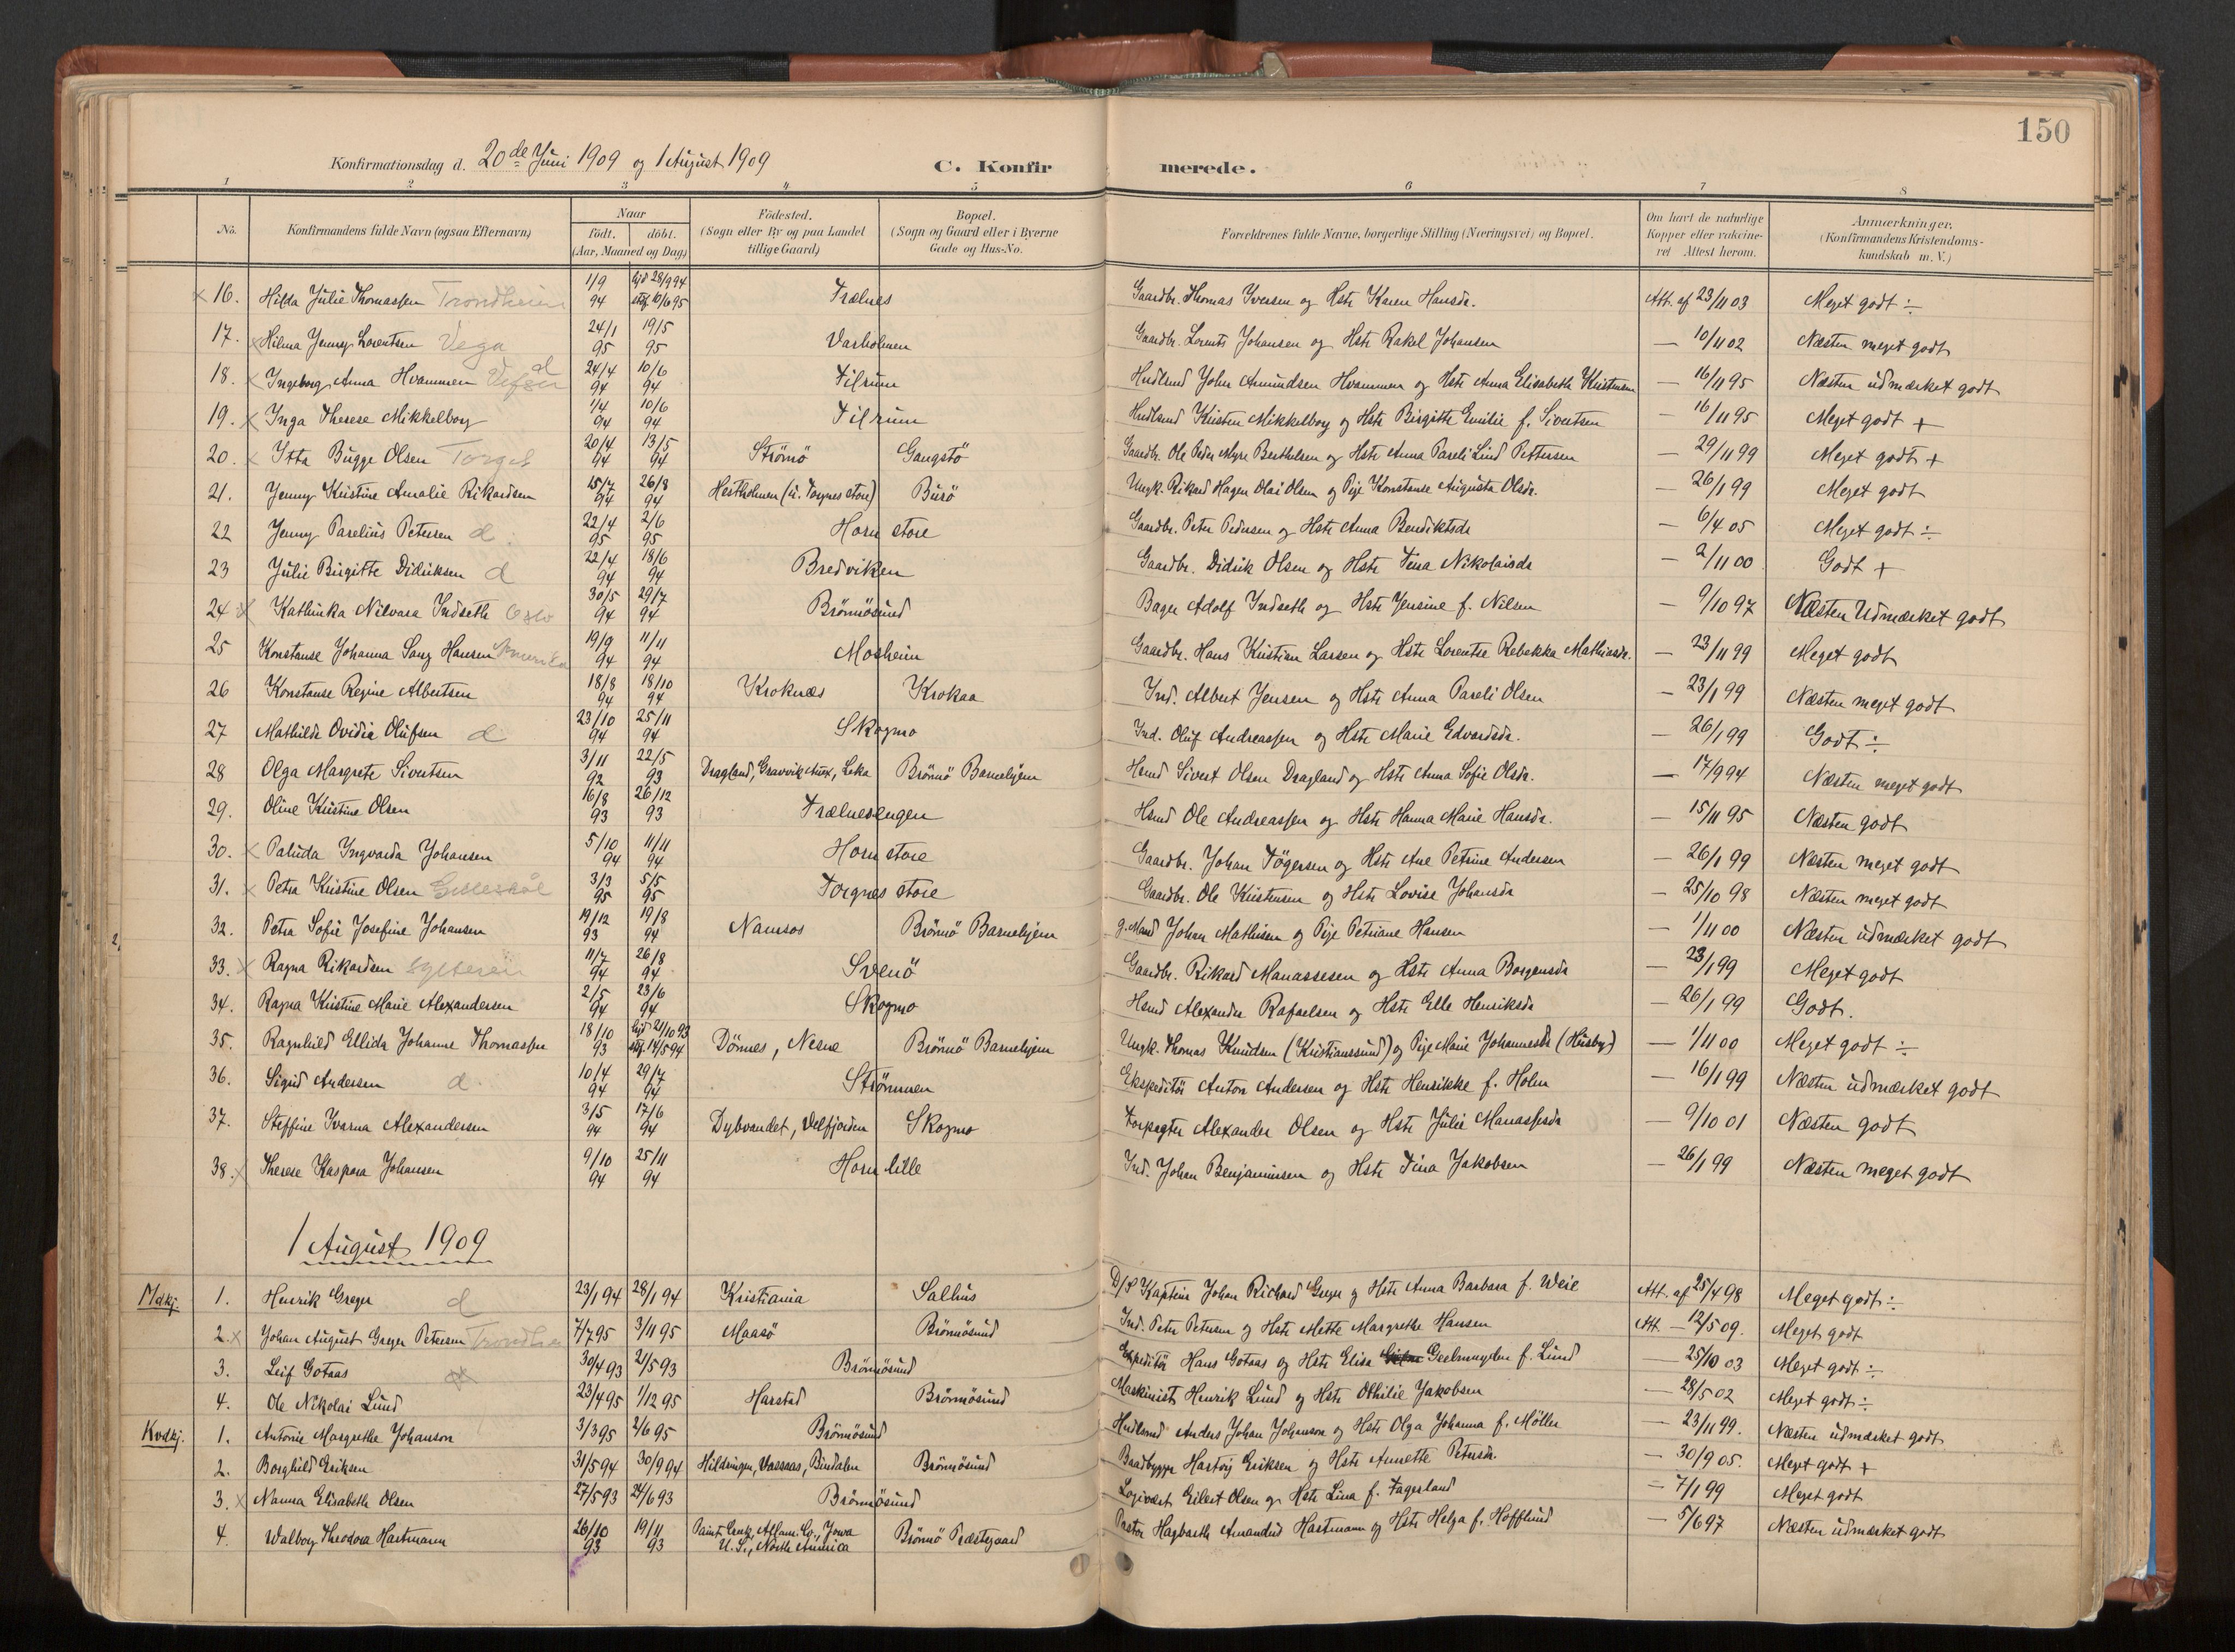 150
Konfirmationsdag d. 20de Juni 1909 og 1 August 1909 C. Konfir merede.
1 2 3 4 5 6 7 8
No. Konfirmandens fulde Navn (ogsaa Efternavn) Naar født. døbt. (Aar, Maaned og Dag) Fødested. (Sogn eller By og paa Landet tillige Gaard) Bopæl. (Sogn og Gaard eller i Byerne Gade og Hus-No. Forældrenes fulde Navne, borgerlige Stilling (Næringsvei) og Bopæl. Om havt de naturlige Kopper eller vakcineret Attest herom. Anmærkninger. (Konfirmandens Kristendomskundskab m. V.)
x 16. Hilda Julie Thomassen Trondheim 1/9 94 hjd 28/9 94 stf. 10/6 95 Trælnes Gaardbr. Thomas Iversen og Hstr Karen Hansdr. Att. af 23/11 03 Meget godt ÷
17. x Hilma Jenny Lorentsen Vega 24/1 95 19/5 95 Varholmen Gaardbr. Lorents Johansen og Hstr Rakel Johansen — 10/11 02 Næsten meget godt
18. x Ingeborg Anna Hvammen Vefsn d 24/4 94 10/6 94 Tilrum Hudlmd John Amundsen Hvammen og Hstr Anna Elisabeth Kristensen — 16/11 95 Næsten udmærket godt
19. x Inga Therese Mikkelborg 1/4 94 10/6 94 Tilrum Hudlmd Kristen Mikkelborg og Hstr Birgitte Emilie f. Sivertsen — 16/11 95 Meget godt +
20. x Itta Bugge Olsen Torget 20/4 94 13/5 94 Strömö Gangstö Gaardbr. Ole Peder Myre Berthelsen og Hstr Anna Pareli Lind Pettersen — 29/11 99 Meget godt +
21. Jenny Kristine Amalie Rikardsen 15/7 94 26/8 94 Hestholmen (u. Torgnes store) Burö Ungk. Rikard Hagen Olai Olsen og Pige Konstanse Augusta Olsdr. — 26/1 99 Meget godt
22 Jenny Parelius Petersen d. 22/4 95 2/6 95 Horn store Gaardbr. Peter Pedersen og Hstr Anna Bendiktsdr — 6/4 05 Meget godt ÷
23 Julie Birgitte Didriksen d 22/4 94 18/6 94 Bredviken Gaardbr. Didrik Olsen og Hstr Tina Nikolaisdr — 2/11 00 Godt +
24 x Kathinka Nilvara Indseth Oslo 30/5 94 29/7 94 Brönnösund Bager Adolf Indseth og Hstr Jensine f. Nilsen — 9/10 97 Næsten Udmærket godt
25 Konstanse Johanna Sang Hansen Amerika 19/9 94 11/11 94 Mosheim Gaardbr. Hans Kristian Larsen og Hstr Lorentse Rebekka Mathiasdr. — 23/11 99 Meget godt
26 Konstanse Regine Albertsen 18/8 94 18/10 94 Kroknæs Krokaa Ind. Albert Jensen og Hstr Anna Pareli Olsen — 23/1 99 Næsten meget godt
27 Mathilde Ovidia Olufsen d 23/10 94 25/11 94 Skogmo Ind. Oluf Andreassen og Hstr Marie Edvardsdr. — 26/1 99 Godt ÷
28 Olga Margrete Sivertsen 3/11 92 22/5 93 Dragland, Gravvik Anx, Leka Brönnö Barnehjem Hsmd Sivert Olsen Dragland og Hstr Anna Sofie Olsdr. — 17/9 94 Næsten meget godt
29. Oline Kristine Olsen 16/8 93 26/12 93 Trælnesengen Hsmd Ole Andreassen og Hstr Hanna Marie Hansdr. — 15/11 95 Næsten godt
30. x Paluda Ingvarda Johansen 5/10 94 11/11 94 Horn store Gaardbr. Johan Tögersen og Hstr Ane Petrine Andersen — 26/1 99 Næsten meget godt
31. x Petra Kristine Olsen Gilleskål 3/3 95 5/5 95 Torgnes store Gaardbr. Ole Kristensen og Hstr Lovise Johansdr — 25/10 98 Næsten meget godt
32. Petra Sofie Josefine Johansen 19/12 93 19/8 94 Namsos Brönnö Barnehjem g. Mand Johan Mathisen og Pige Petriane Hansen — 1/11 00 Næsten udmærket godt
33. x Ragna Rikardsen 11/7 94 26/8 94 Svenö Gaardbr. Rikard Manassesen og Hstr Anna Borgensdr — 23/1 99 Meget godt
34. Ragna Kristine Marie Alexandersen 2/5 94 23/6 94 Skogmo Hsmd Alexander Rafaelsen og Hstr Elle Henriksdr — 26/1 99 Godt.
35. Ragnhild Ellida Johanne Thomassen 18/10 93 hjd 21/10 93 stf. 14/5 94 Dönnes, Nesne Brönnö Barnehjem Ungk. Thomas Knudsen (Kristianssund) og Pige Marie Johannesdr (Husby) — 1/11 00 Meget godt ÷
36. Sigrid Andersen d. 10/4 94 29/7 94 Strömmen Ekspeditör Anton Andersen og Hstr Henrikke f. Holm — 16/1 99 Næsten udmærket godt
37. Steffine Ivarna Alexandersen 3/5 94 17/6 94 Dybvandet, Velfjorden Skogmo Forpagter Alexander Olsen og Hstr Julie Manassesdr — 9/10 01 Næsten godt
38. x Therese Kaspara Johansen 9/10 94 25/11 94 Horn lille Ind. Johan Benjaminsen og Hstr Tina Jakobsen — 26/1 99 Næsten meget godt
1 August 1909
Mdkj. 1. Henrik Greger d 23/1 94 28/1 94 Kristiania Salhus D/S Kaptein Johan Richard Greger og Hstr Anna Barbara f. Weie Att. af 25/4 98 Meget godt ÷
2. x Johan August Greger Petersen Trondheim 7/7 95 3/11 95 Maasö Brönnösund Ind. Peter Petersen og Hstr Mette Margrethe Hansen Att. — 12/5 09. Meget godt
3. Leif Gotaas 30/4 93 21/5 93 Brönnösund Expeditör Hans Gotaas og Hstr Elisa Geelmuyden f. Lund — 25/10 03 Meget godt ÷
4. Ole Nikolai Lund 23/4 95 1/12 95 Harstad Brönnösund Maskinist Henrik Lund og Hstr Othilie Jakobsen — 28/5 02 Meget godt ÷
Kvdkj. 1. Antonie Margrethe Johanson 3/3 95 2/6 95 Brönnösund Hudlmd Anders Johan Johanson og Hstr Olga Johanna f. Möller — 23/11 99. Næsten udmærket godt
2. Borghild Eriksen 31/5 94 30/9 94 Hildringen, Vassaas, Bindalen Brönnösund Baadbygger Hartvig Eriksen og Hstr Annette Petersdr. — 30/9 05. Meget godt +
3. x Nanna Elisabeth Olsen 27/5 93 24/6 93 Brönnösund Logivært Eilert Olsen og Hstr Lina f. Fagerland — 7/1 99 Meget godt
4. Walborg Theodora Hartmann 26/10 93 19/11 93 Paint Creek, Allam. Co., Jowa U. S., North America Brönnö Præstegaard Pastor Hagbarth Amandus Hartmann og Hstr Helga f. Hofflund — 5/6 97 Næsten udmærket godt